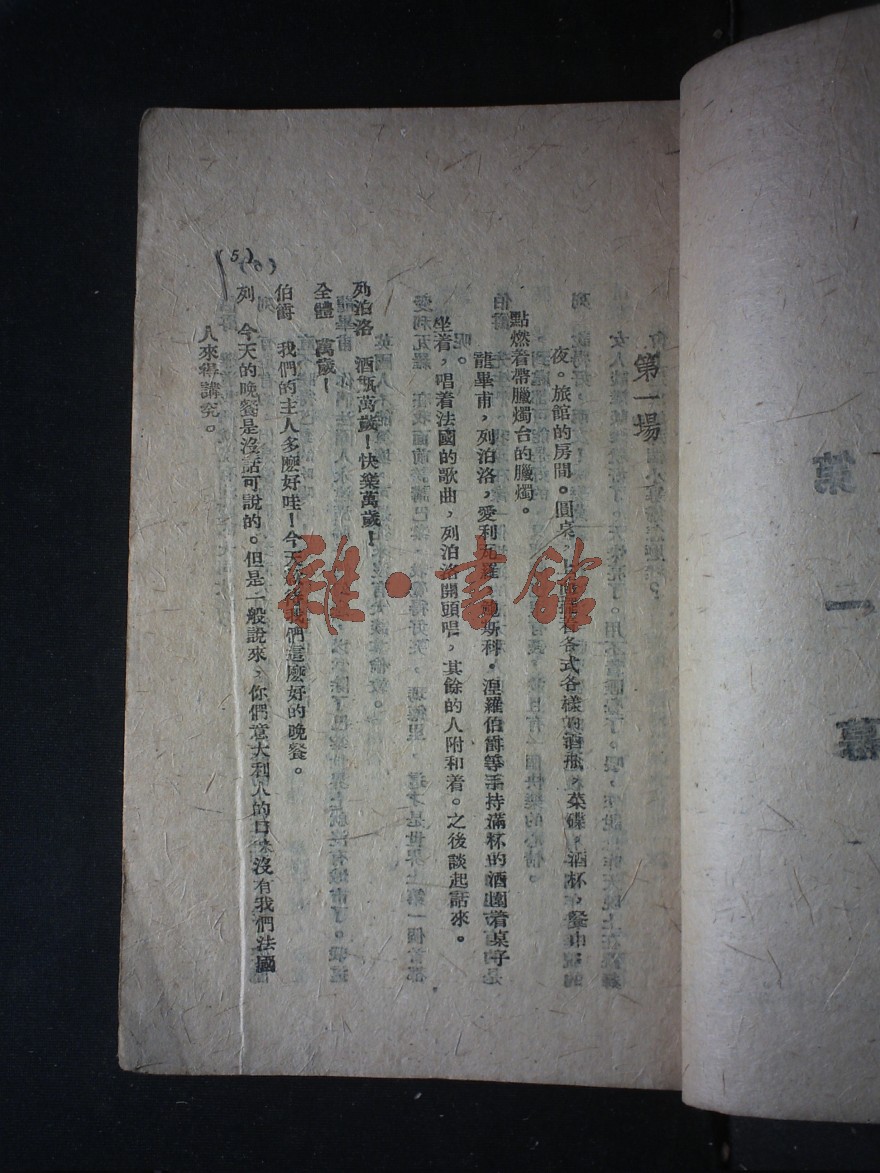 第一場
夜。旅館的房間。圓桌，上面擺着各式各樣的酒瓶，菜碟，酒杯，餐巾
點燃着帶臘燭台的臘燭。
龍畢甫，列泊洛，愛利瓦羅，鮑斯科。湼羅伯爵等手持滿杯的酒圍着桌子
坐着，唱着法國的歌曲，列泊洛開頭唱，其餘的人附和着。之後談起話來。
列泊洛　酒瓶萬歲！快樂萬歲！
全體　萬歲！
伯爵　我們的主人多麽好哇！今天款待我們這麽好的晚餐。
列　今天的晚餐是沒話可說的。但是一般說來，你們意大利人的口味沒有我們法國
人來得講究。
(5)
雅·書館